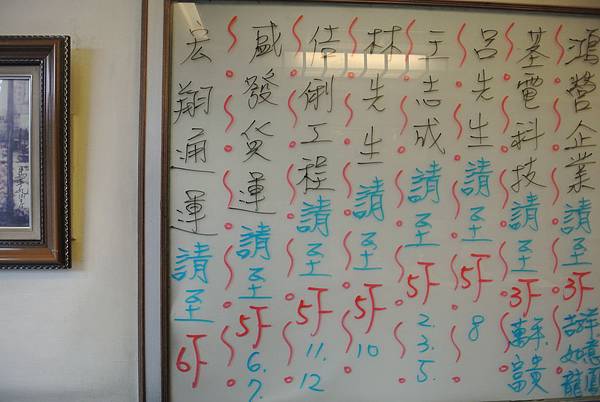 鴻營企業請至3F吉祥如意龍鳳
基電科技請至3F東禾富貴
呂先生請至5F8
王志成請至5F2.3.5.
林先生請至5F10
倍俐工程請至5F11.12
盛發貨運請至5F6.7.
宏翔通運請至6F